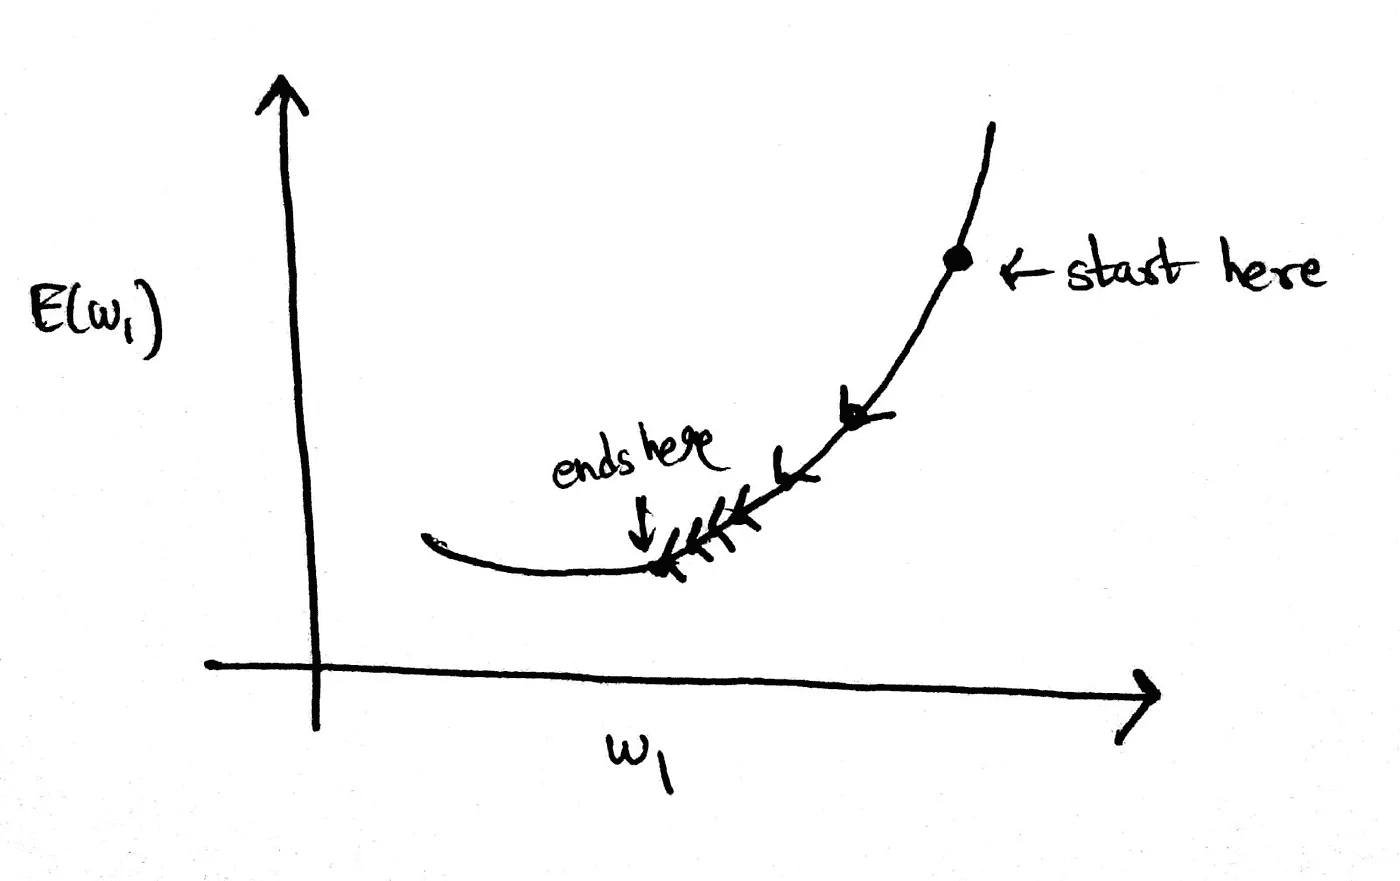 E(w₁)
← start here
ends here
↓
w₁